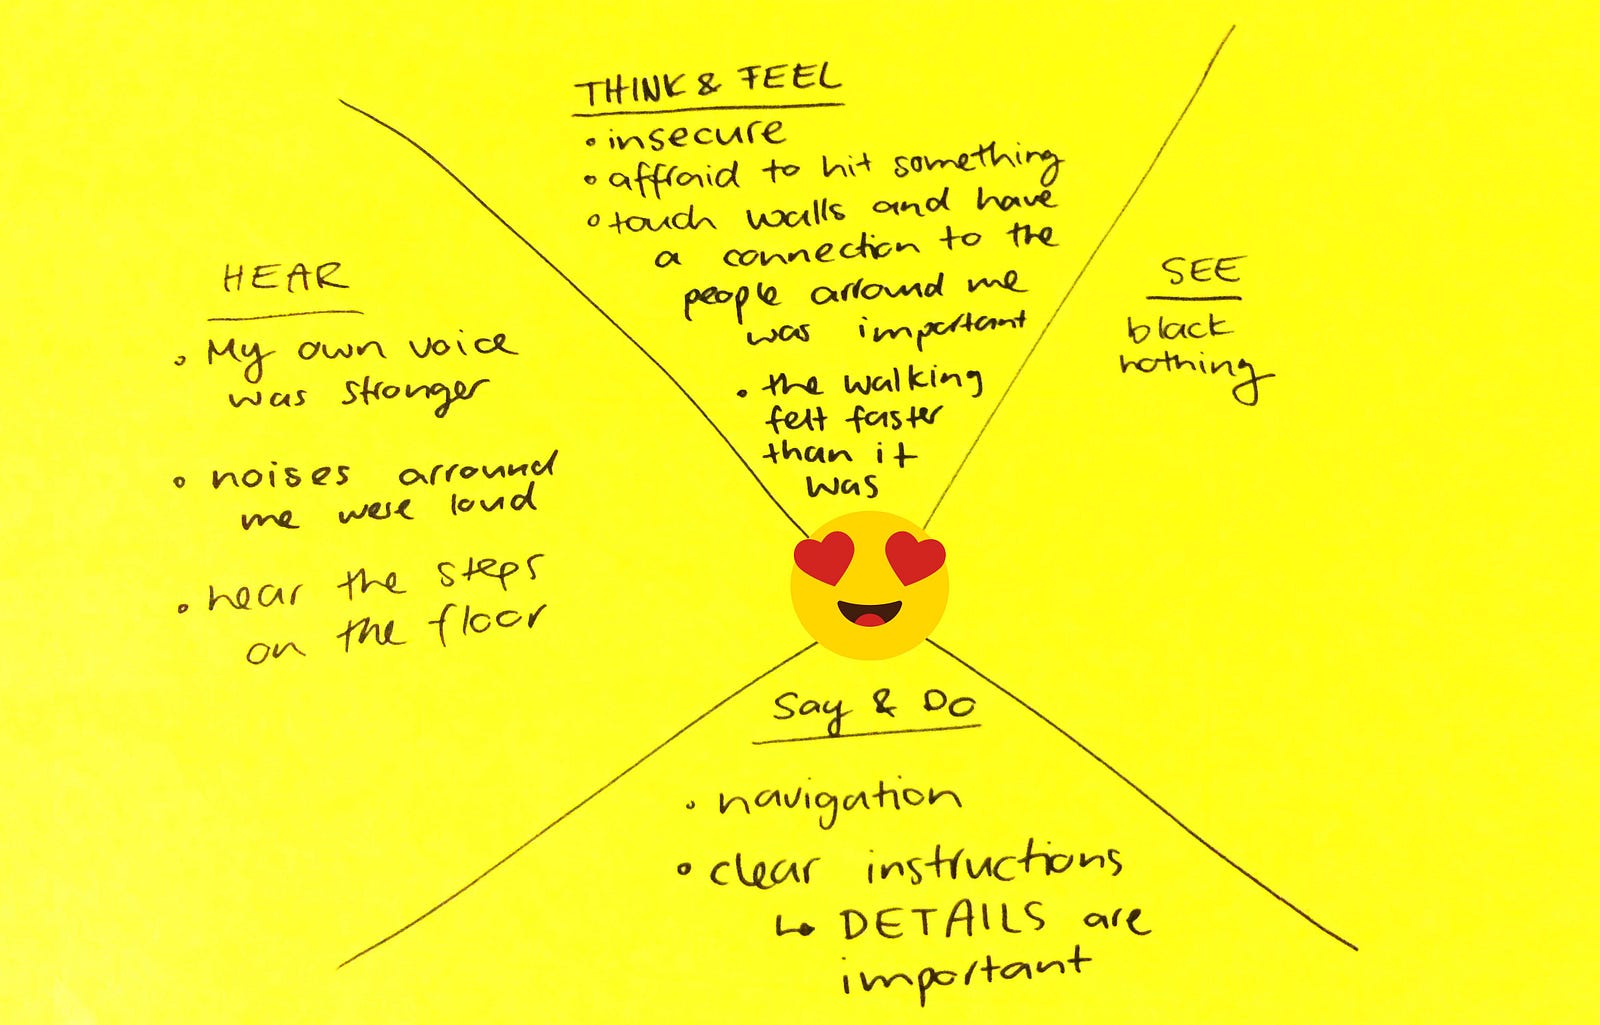 THINK & FEEL
• insecure
• affraid to hit something
• touch walls and have
a connection to the
people arround me
was important
• the walking
felt faster
than it
was
HEAR
• My own voice
was stronger
• noises arround
me were loud
• hear the steps
on the floor
SEE
black
nothing
Say & Do
• navigation
• clear instructions
↳ DETAILS are
important